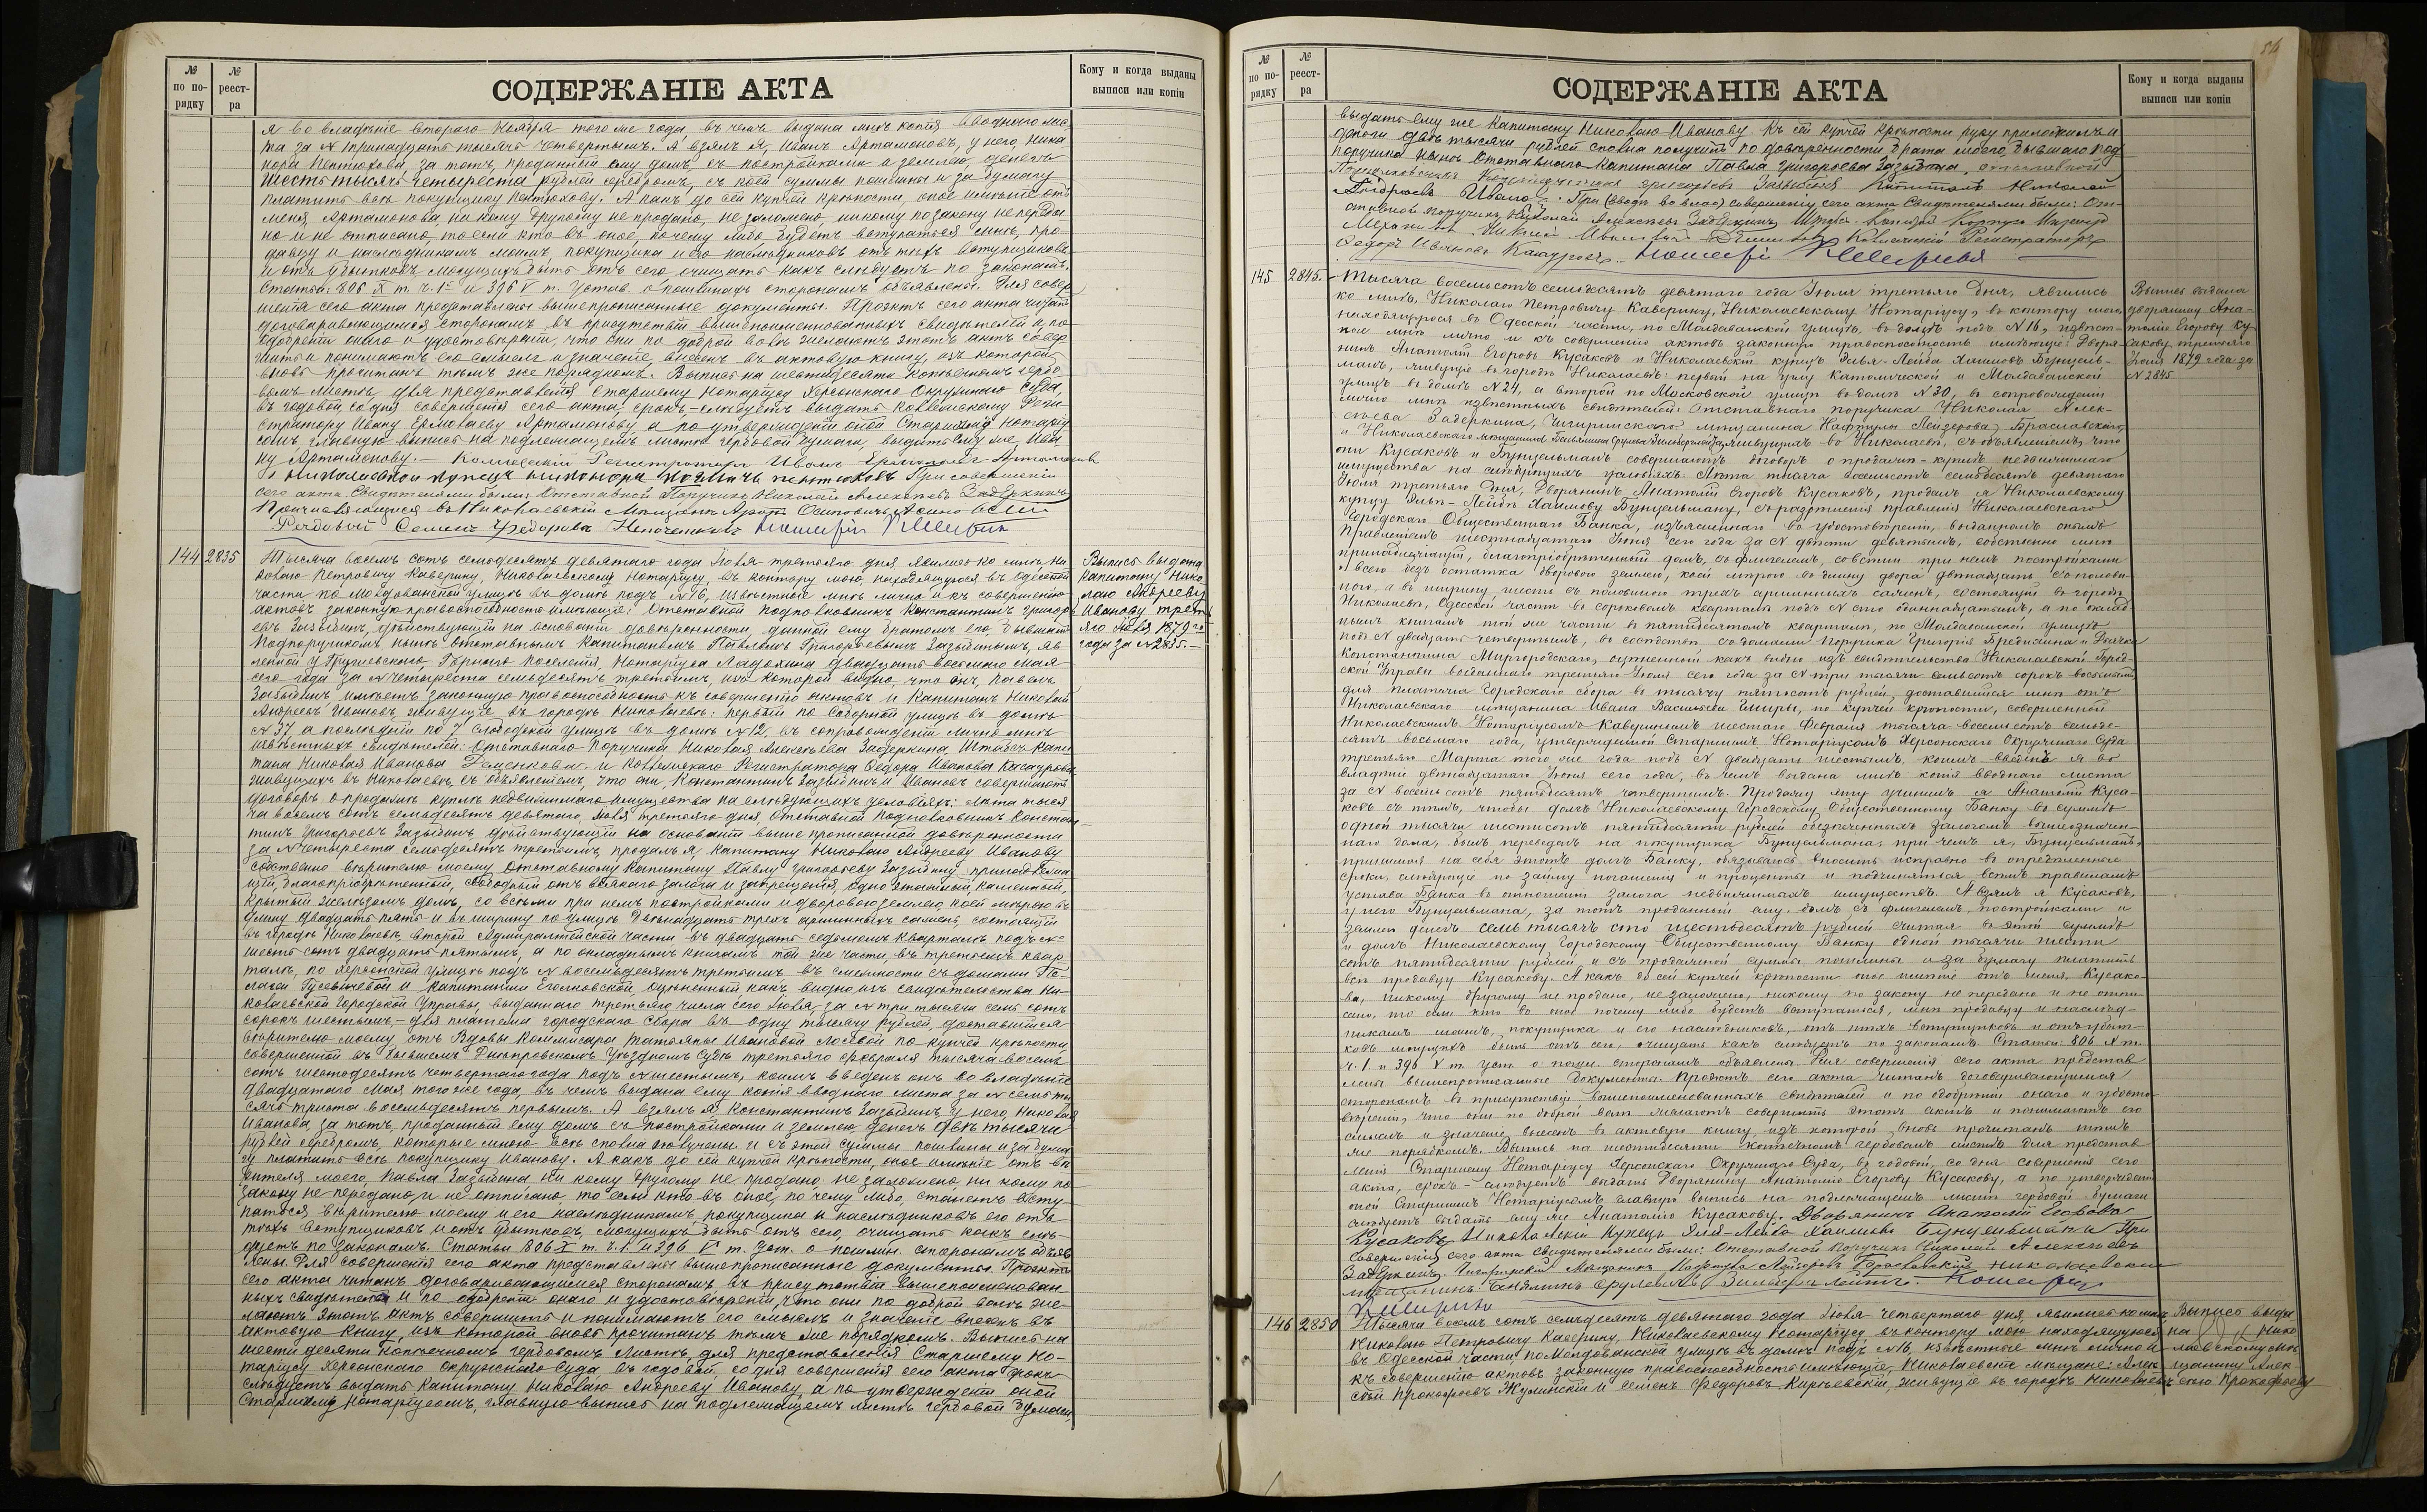 № по по-рядку
№ реест-ра
СОДЕРЖАНІЕ АКТА
Кому и когда выданы выписи или копіи
я во владѣніе втораго Ноября того же года, въ чемъ выдана мнѣ копія вводнаго лис
та за № тринадцать тысячъ четвертымъ. А взялъ я, Иванъ Артамоновъ, у него, Ника
нора Пентюхова, за тотъ, проданный ему домъ, съ постройками и землею, денегъ
шесть тысячъ четыреста рублей серебромъ, съ коей суммы пошлины и за бумагу
платить всѣ покупщику Пентюхову. А какъ до сей купчей крѣпости, оное имѣніе отъ
меня Артамонова ни кому другому не продано, не заложено, никому по закону не переда
но и не отписано, то если кто въ оное, почему либо будетъ вступаться мнѣ, про-
давцу и наслѣдникамъ моимъ, покупщика и его наслѣдниковъ отъ тѣхъ вступщиковъ
и отъ убытковъ могущихъ быть отъ сего, очищать какъ слѣдуетъ по законамъ.
Статьи: 806 X т. ч. 1 и 396 V т. Устав. о пошлинахъ сторонамъ объявлены. Для совер
шенія сего акта представлены вышепрописанные документы. Проэктъ сего акта читанъ
договаривающимся сторонамъ въ присутствіи вышепоименованныхъ свидѣтелей и, по
одобреніи онаго и удостовѣреніи, что они по доброй волѣ желаютъ этотъ актъ совер
шить и понимаютъ его смыслъ и значеніе, внесенъ въ актовую книгу, изъ которой
вновь прочитанъ тѣмъ же порядкомъ. Выпись на шестидесяти копѣечномъ гербо
вомъ листѣ, для представленія Старшему Нотаріусу Херсонскаго Окружнаго Суда,
въ годовой, со дня совершенія сего акта, срокъ, - слѣдуетъ выдать Коллежскому Реги
стратору Ивану Ермолаеву Артамонову, а по утвержденіи оной Старшимъ Нотаріу
сомъ главную выпись на подлежащемъ листѣ гербовой бумаги, выдать ему же, Ива
ну Артамонову. - Коллежскій Регистраторъ Иванъ Ермолаевъ Артамоновъ
Николаевской купецъ Никонора Пентюховъ При совершеніи
сего акта Свидѣтелями были: Отставной Поручикъ Николай Алексѣевъ Задёркинъ
Причисляющійся въ Николаевскій Мѣщанъ Осиповичъ
Рядовый Семенъ Федоровъ
144 2835
Тысяча восемь сотъ семьдесятъ девятаго года Іюля третьяго дня, явились ко мнѣ, Ни
колаю Петровичу Каверину, Николаевскому Нотаріусу, въ контору мою, находящуюся въ Одесской
части по Молдованской улицѣ въ домѣ подъ №16, извѣстные мнѣ лично и къ совершенію
актовъ законную правоспособность имѣющіе: Отставной Подполковникъ Константинъ Григорь
евъ Зазыбинъ, дѣйствующій на основаніи довѣренности, данной ему братомъ его, бывшимъ
Подпоручикомъ нынѣ отставнымъ Капитаномъ Павломъ Григорьевымъ Зазыбинымъ, яв
ленной у Грушевскаго, Горнаго поселенія, Нотаріуса Ладохина двадцать восьмаго мая
сего года за № четыреста семьдесятъ третьимъ, изъ которой видно, что онъ, Павелъ
Зазыбинъ имѣетъ законную правоспособность къ совершенію актовъ и Капитанъ Николай
Андреевъ Ивановъ, живущіе въ городѣ Николаевѣ: первый по Соборной улицѣ въ домѣ
№37, а послѣдній по 7 Слободской улицѣ въ домѣ №12, въ сопровожденіи лично мнѣ
извѣстныхъ свидѣтелей: Отставнаго Поручика Николая Алексѣева Задеркина, Штабсъ Капи
тана Николая Иванова Деменкова и Коллежскаго Регистратора Федора Иванова Качаурова
живущихъ въ Николаевѣ, съ объявленіемъ, что они, Константинъ Зазыбинъ и Ивановъ совершаютъ
договоръ о продажѣ куплѣ недвижимаго имущества на слѣдующихъ условіяхъ: Лѣта тыся
ча восемь сотъ семьдесятъ девятаго, Іюля третьяго дня, Отставной Подполковникъ Констан
тинъ Григорьевъ Зазыбинъ, дѣйствующій на основаніи выше прописанной довѣренности
за № четыреста семьдесятъ третьимъ, продалъ я, Капитану Николаю Андрееву Иванову
собственно вѣрителю моему Отставному Капитану Павлу Григорьеву Зазыбину принадлежа
щій, благопріобрѣтенный, свободный отъ всякаго залога и запрещенія, одно этажный, каменный,
крытый желѣзомъ домъ, со всѣми при немъ постройками и дворовою землею коей мѣрою въ
длину двадцать пять и въ ширину по улицѣ двѣнадцать трехъ аршинныхъ сажень, состоящій
въ городѣ Николаевѣ, второй Адмиралтейской части въ двадцать седьмомъ кварталѣ подъ №
шесть сотъ двадцать пятымъ, а по окладнымъ книгамъ той же части, въ третьемъ квар
талѣ, по Херсонской улицѣ подъ № восемьдесятъ третьимъ въ смежности съ домами Пе
лагеи Гусевичевой и Капитанши Еголковской, оцѣненный какъ видно изъ свидѣтельства Ни
колаевской Городской Управы, выданнаго третьяго числа сего Іюля за № три тысячи семь сотъ
сорокъ шестымъ, - для платежа городскаго сбора въ одну тысячу рублей, доставшійся
вѣрителю моему отъ Вдовы Коммисара Татьяны Ивановой Лосевой по купчей крѣпости,
совершенной въ бывшемъ Днѣпровскомъ Уѣздномъ Судѣ третьяго февраля тысяча восемь
сотъ шестьдесятъ четвертаго года подъ № шестымъ, коимъ введенъ онъ во владѣніе
двадцатаго Мая того же года, въ чемъ выдана ему копія вводнаго листа за № семь ты
сячъ триста восемьдесятъ первымъ. А взялъ я, Константинъ Зазыбинъ у него, Николая
Иванова, за тотъ, проданный ему домъ съ постройками и землею денегъ двѣ тысячи
рублей серебромъ, которые мною всѣ сполна получены и съ этой суммы пошлины и за бума
гу платить всѣ покупщику Иванову. А какъ до сей купчей крѣпости, оное имѣніе отъ вѣ
рителя моего, Павла Зазыбина ни кому другому не продано, не заложено, ни кому по
закону не передано, и не отписано, то если кто въ оное, по чему либо, станетъ всту
паться вѣрителю моему и его наслѣдникамъ, покупщика и наслѣдниковъ его отъ
тѣхъ вступщиковъ и отъ убытковъ, могущихъ быть отъ сего, очищать какъ слѣ-
дуетъ по законамъ. Статьи 806 X т. ч. 1. и 396 V т. Уст. о пошлин. сторонамъ объяв
лены. Для совершенія сего акта представлены вышепрописанные документы. Проэктъ
сего акта читанъ договаривающимся сторонамъ въ присутствіи вышепоименован
ныхъ свидѣтелей и по одобреніи онаго и удостовѣреніи, что они по доброй волѣ же-
лаютъ этотъ актъ совершить и понимаютъ его смыслъ и значеніе внесенъ въ
актовую книгу, изъ которой вновь прочитанъ тѣмъ же порядкомъ. Выпись на
шестидесяти копѣечномъ гербовомъ листѣ, для представленія Старшему Но-
таріусу Херсонскаго окружнаго Суда, въ годовой, со дня совершенія сего акта срокъ
слѣдуетъ выдать Капитану Николаю Андрееву Иванову, а по утвержденіи оной
Старшимъ Нотаріусомъ, главную выпись на подлежащемъ листѣ гербовой бумаги,
Выпись выдана
Капитану Нико
лаю Андрееву
Иванову треть
яго Іюля 1879 го
года за №2835. -
№ по по-рядку
№ реест-ра
СОДЕРЖАНІЕ АКТА
Кому и когда выданы выписи или копіи
выдать ему же Капитану Николаю Иванову. Къ сей купчей крѣпости руку приложилъ и
деньги двѣ тысячи рублей сполна получилъ по довѣренности брата моего, бывшаго Под
поручика нынѣ Отставнаго Капитана Павла Григорьева Зазыбина, отставной
Подполковникъ Константинъ Григорьевъ Зазыбинъ Капитанъ Николай
Андреевъ Ивановъ. При (вводъ во влад) совершеніи сего акта Свидѣтелями были: От-
ставной поручикъ Николай Алексѣевъ Задёркинъ, Штабсъ-Капитанъ Корпуса Инженеръ
Механиковъ Николай Ивановъ Деменковъ Коллежскій Регистраторъ
Федоръ Ивановъ Качауровъ.
145 2845.
Тысяча восемьсотъ семьдесятъ девятаго года Іюля третьяго дня, явились
ко мнѣ, Николаю Петровичу Каверину, Николаевскому Нотаріусу, въ контору мою,
находящуюся въ Одесской части, по Молдаванской улицѣ, въ домѣ подъ №16, извѣст-
ные мнѣ лично и къ совершенію актовъ законную правоспособность имѣющіе: Дворя-
нинъ Анатолій Егоровъ Кусаковъ и Николаевскій купецъ Эля-Лейба Хаимовъ Бунцель-
манъ, живущіе въ городѣ Николаевѣ: первый на углу Католической и Молдаванской
улицъ въ домѣ №24, а второй по Московской улицѣ въ домѣ №30, въ сопровожденіи
лично мнѣ извѣстныхъ свидѣтелей: Отставнаго поручика Николая Алек-
сѣева Задеркина, Чигиринскаго мѣщанина Нафтулы Лейзерова Браславскаго,
и Николаевскаго мѣщанина Беньямина Срулева Зильберлейта, живущихъ въ Николаевѣ, съ объявленіемъ, что
они Кусаковъ и Бунцельманъ совершаютъ договоръ о продажѣ-куплѣ недвижимаго
имущества на слѣдующихъ условіяхъ. Лѣта тысяча восемьсотъ семьдесятъ девятаго
Іюля третьяго дня, Дворянинъ Анатолій Егоровъ Кусаковъ, продалъ я Николаевскому
купцу Эль-Лейбѣ Хаимову Бунцельману, съ разрѣшенія правленія Николаевскаго
Городскаго Общественнаго Банка, изъясненнаго въ удостовѣреніи, выданномъ онымъ
Правленіемъ шестнадцатаго Іюня сего года за № двѣсти девятымъ, собственно мнѣ
принадлежащій, благопріобрѣтенный домъ, съ флигелемъ, со всѣми при немъ постройками
и всею безъ остатка дворовою землею, коей мѣрою въ длину двора двѣнадцать съ полови-
ною, а въ ширину, шесть съ половиною трехъ аршинныхъ сажень, состоящій въ городѣ
Николаевѣ, Одесской части въ сороковомъ кварталѣ подъ № сто одиннадцатымъ, а по оклад-
нымъ книгамъ той же части въ пятидесятомъ кварталѣ, по Молдаванской улицѣ
подъ № двадцать четвертымъ, въ сосѣдствѣ съ домами Поручика Григорія Бредихина и Дьячка
Константина Миргородскаго, оцѣненный какъ видно изъ свидѣтельства Николаевской Город-
ской Управы выданнаго третьяго Іюля сего года за № три тысячи семьсотъ сорокъ восьмымъ
для платежа Городскаго сбора въ тысячу пятьсотъ рублей, доставшійся мнѣ отъ
Николаевскаго мѣщанина Ивана Васильева Гмыры, по купчей крѣпости, совершенной
Николаевскимъ Нотаріусомъ Каверинымъ шестаго Февраля тысяча восемьсотъ семьде-
сятъ восьмаго года, утвержденной Старшимъ Нотаріусомъ Херсонскаго Окружнаго Суда
третьяго Марта того же года подъ № двадцать шестымъ, коимъ введенъ я во
владѣніе двѣнадцатаго Іюня сего года, въ чемъ выдана мнѣ копія вводнаго листа
за № восемьсотъ пятьдесятъ четвертымъ. Продажу эту учинилъ я Анатолій Куса-
ковъ съ тѣмъ, чтобы долгъ Николаевскому Городскому Общественному Банку въ суммѣ
одной тысячи шестисотъ пятидесяти рублей обезпеченныхъ залогомъ вышеозначен-
наго дома, былъ переведенъ на покупщика Бунцельмана, при чемъ я, Бунцельманъ,
принимая на себя этотъ долгъ Банку, обязываюсь вносить исправно въ опредѣленные
сроки, слѣдующіе по займу погашенія и проценты и подчиняться всѣмъ правиламъ
устава Банка въ отношеніи залога недвижимыхъ имуществъ. А взялъ я Кусаковъ,
у него Бунцельмана, за тотъ проданный ему домъ съ флигелемъ, постройками и
землею денегъ семь тысячъ сто шестьдесятъ рублей считая въ этой суммѣ
и долгъ Николаевскому Городскому Общественному Банку одной тысячи шести
сотъ пятидесяти рублей, и съ продажной суммы пошлины и за бумагу платить
всѣ продавцу Кусакову. А какъ до сей купчей крѣпости оное имѣніе отъ меня, Кусако-
ва, никому другому не продано, не заложено, никому по закону не передано и не отпи-
сано, то если кто въ оное почему либо будетъ вступаться, мнѣ продавцу и наслѣд-
никамъ моимъ, покупщика и его наслѣдниковъ, отъ тѣхъ вступщиковъ и отъ убыт-
ковъ могущихъ быть отъ сего, очищать какъ слѣдуетъ по законамъ. Статьи: 806 X т.
ч. 1 и 396 V т. Уст. о пошл. сторонамъ объявлены. Для совершенія сего акта представ
лены вышепрописанные документы. Проэктъ сего акта читанъ договаривающимся
сторонамъ въ присутствіи вышепоименованныхъ свидѣтелей и по одобреніи онаго и удосто-
вѣреніи, что они по доброй волѣ желаютъ совершить этотъ актъ и понимаютъ его
смыслъ и значеніе, внесенъ въ актовую книгу, изъ которой вновь прочитанъ тѣмъ
же порядкомъ. Выпись на шестидесяти копѣечномъ гербовомъ листѣ для представ
ленія Старшему Нотаріусу Херсонскаго Окружнаго Суда, въ годовой, со дня совершенія сего
акта, срокъ - слѣдуетъ выдать Дворянину Анатолію Егорову Кусакову, а по утвержденіи
оной Старшимъ Нотаріусомъ главную выпись на подлежащемъ листѣ гербовой бумаги
слѣдуетъ выдать ему же Анатолію Кусакову. Дворянинъ Анатолій Егоровъ
Кусаковъ. Николаевскій Купецъ Эля-Лейба Хаимовъ Бунцельманъ При
совершеніи сего акта свидѣтелями были: Отставной Поручикъ Николай Алексѣевъ
Задёркинъ. Чигиринскій Мѣщанинъ Нафтула Лейзеровъ Браславскій Николаевскій
мѣщанинъ: Бенямиnъ Срулевичъ Зильберлейтъ.
Выпись выдана
дворянину Ана-
толію Егорову Ку
сакову третьяго
Іюля 1879 года за
№2845
146 2850
Тысяча восемь сотъ семьдесятъ девятаго года Іюля четвертаго дня, явились ко мнѣ,
Николаю Петровичу Каверину, Николаевскому Нотаріусу, въ контору мою находящуюся
въ Одесской части, по Молдованской улицѣ въ домѣ подъ №16, извѣстные мнѣ лично и
къ совершенію актовъ законную правоспособность имѣющіе, Николаевскіе мѣщане: Алек
сѣй Прокофьевъ Жулинскій и Семенъ Федоровъ Киріевскій, живущіе въ городѣ Николаевѣ
Выпись выда
на Нико
лаевскому мѣ
щанину Алек-
сѣю Прокофьеву